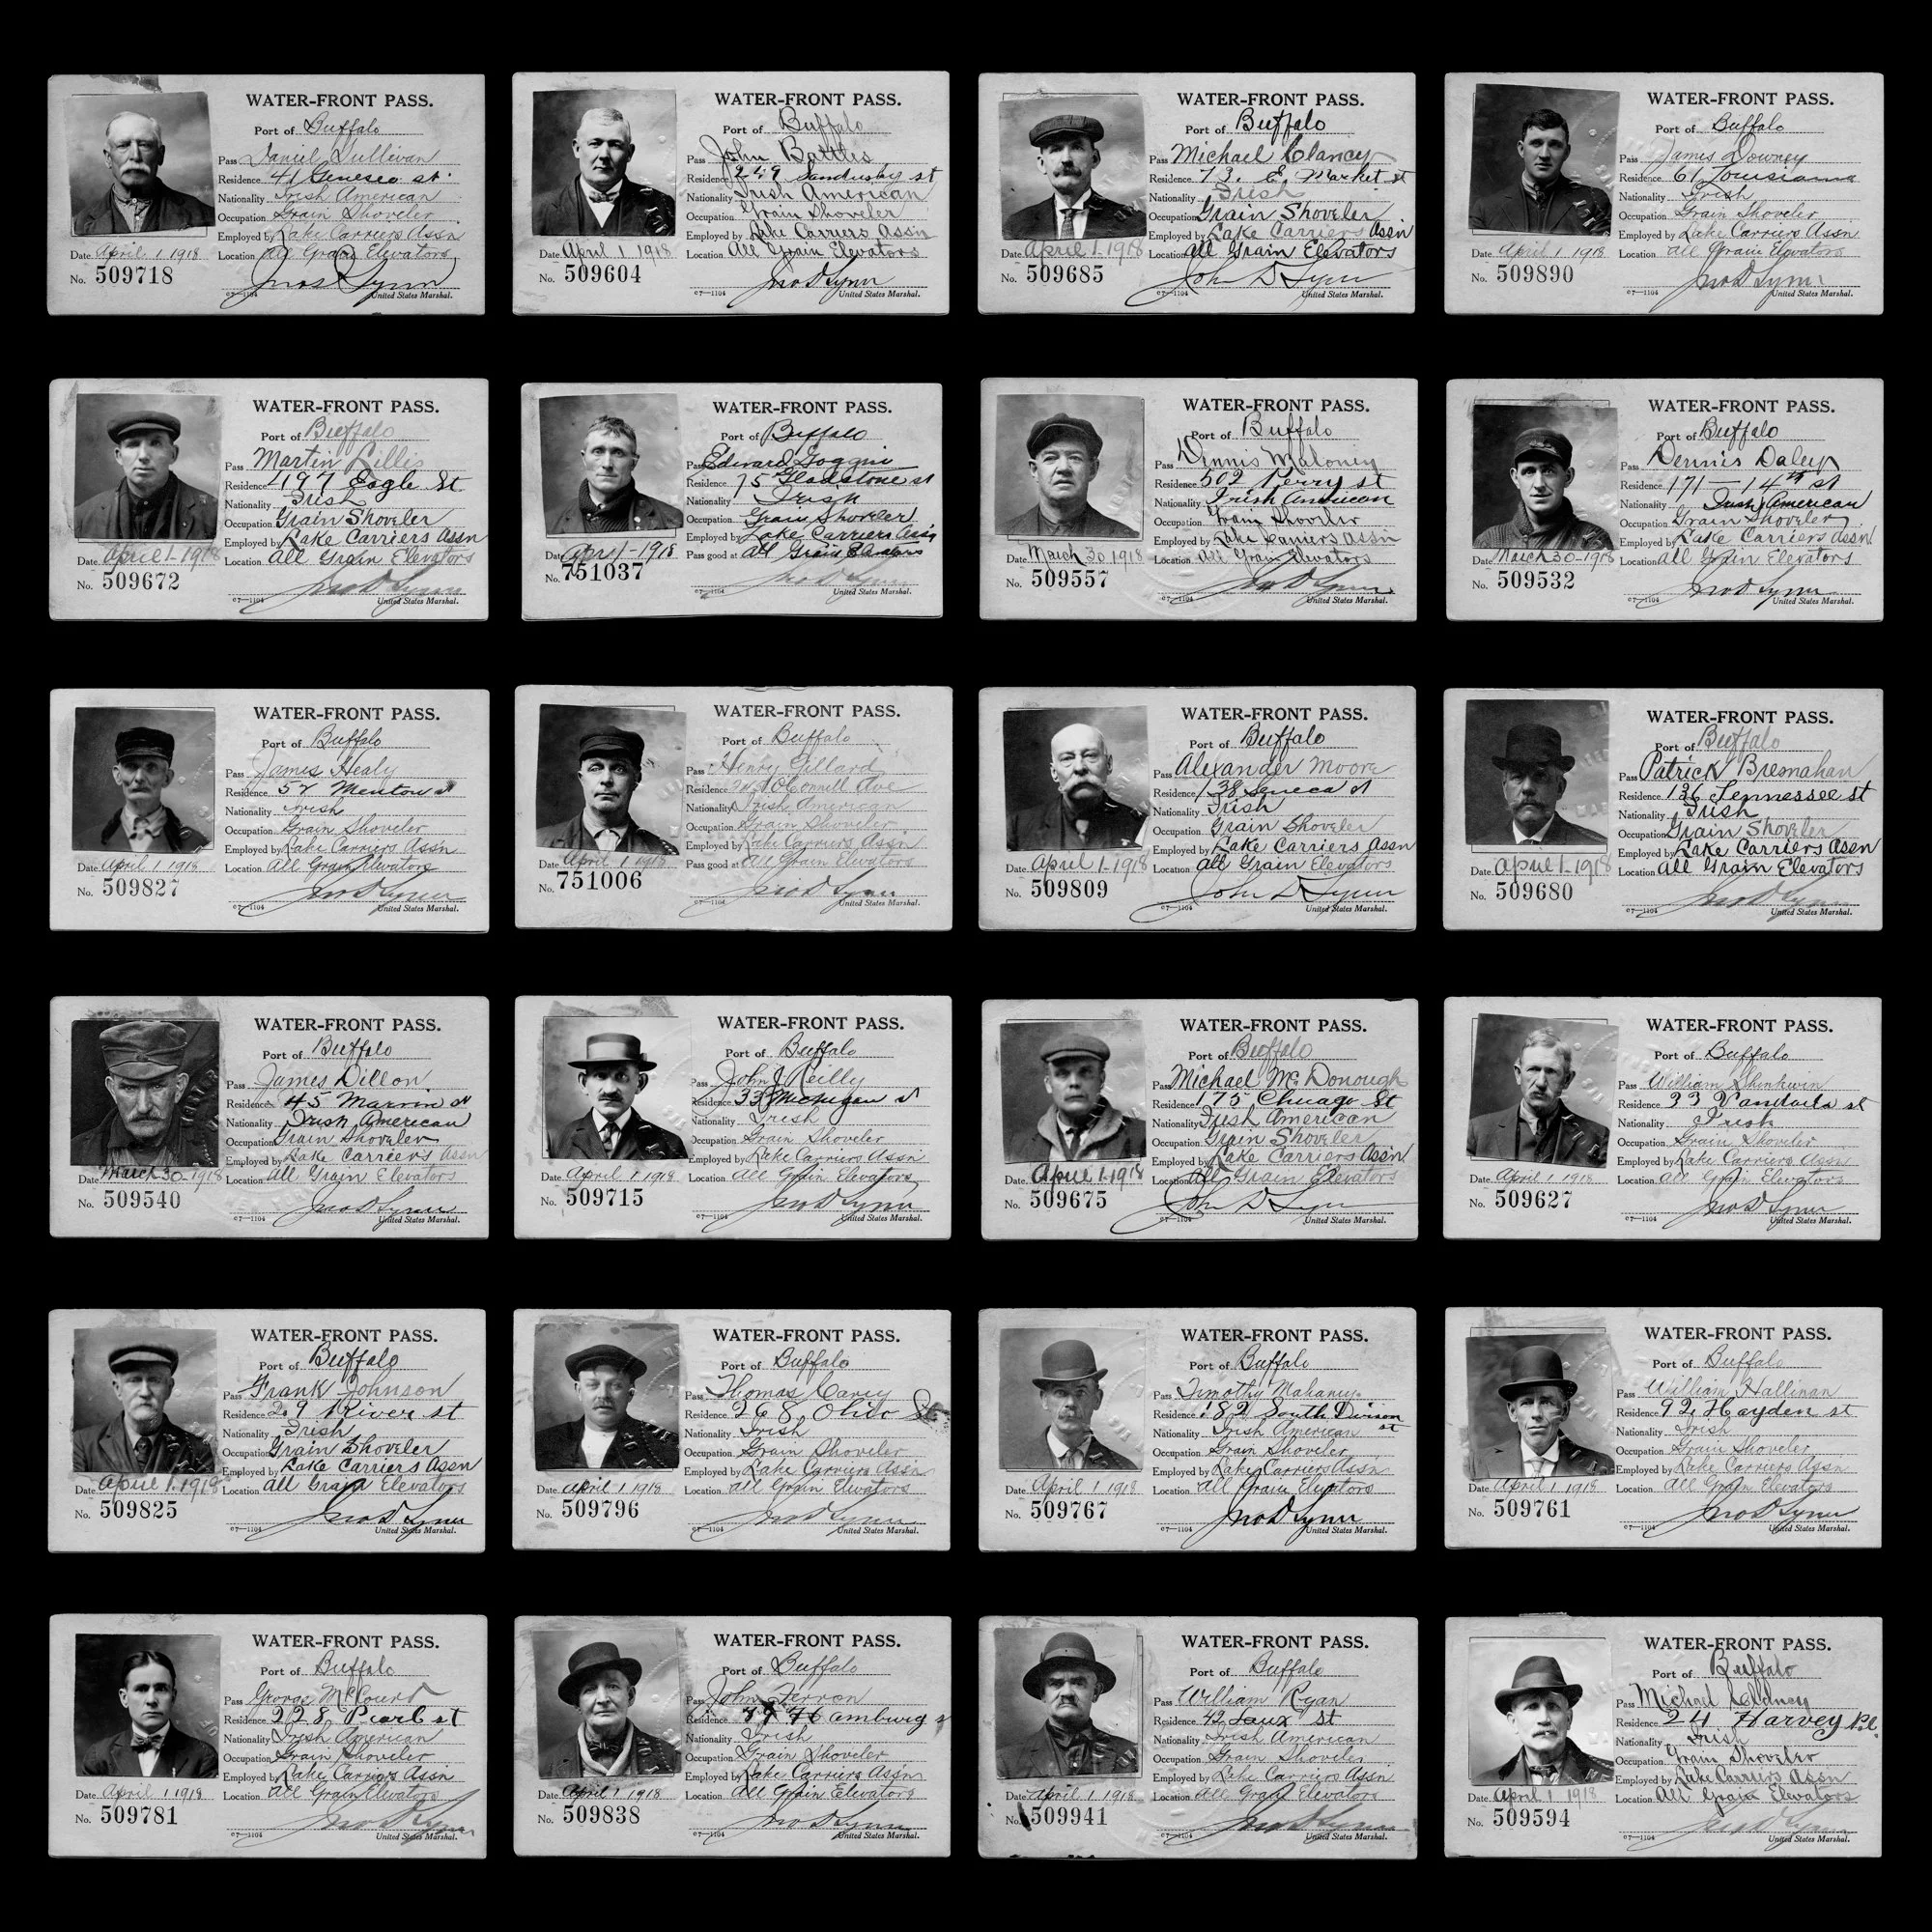 WATER-FRONT PASS.
Port of Buffalo
Pass Daniel Sullivan
Residence 41 Geneseo st.
Nationality Irish American
Occupation Grain Shoveler
Employed by Lake Carriers Assn
Date April 1 1918 Location All Grain Elevators
No. 509718
Jno D Lynn
c7—1104 United States Marshal.
WATER-FRONT PASS.
Port of Buffalo
Pass John Battles
Residence 249 Sandusky st
Nationality Irish American
Occupation Grain Shoveler
Employed by Lake Carriers Assn
Date April 1 1918 Location All Grain Elevators
No. 509604
Jno D Lynn
c7—1104 United States Marshal.
WATER-FRONT PASS.
Port of Buffalo
Pass Michael Clancy
Residence 73. E. Market st
Nationality Irish
Occupation Grain Shoveler
Employed by Lake Carriers Assn
Date April 1-1918 Location All Grain Elevators
No. 509685
John D Lynn
c7—1104 United States Marshal.
WATER-FRONT PASS.
Port of Buffalo
Pass James Downey
Residence 61 Louisiana
Nationality Irish
Occupation Grain Shoveler
Employed by Lake Carriers Assn
Date April 1 1918 Location All Grain Elevators
No. 509890
Jno D Lynn
c7—1104 United States Marshal.
WATER-FRONT PASS.
Port of Buffalo
Pass Martin Lillis
Residence 497 Eagle St
Nationality Irish
Occupation Grain Shoveler
Employed by Lake Carriers Assn
Date April 1-1918 Location All Grain Elevators
No. 509672
Jno D Lynn
c7—1104 United States Marshal.
WATER-FRONT PASS.
Port of Buffalo
Pass Edward Goggin
Residence 75 Gladstone st
Nationality Irish
Occupation Grain Shoveler
Employed by Lake Carriers Assn
Date Apr 1-1918 Pass good at All Grain Elevators
No. 751037
Jno D Lynn
c7—1104 United States Marshal.
WATER-FRONT PASS.
Port of Buffalo
Pass Dennis Maloney
Residence 502 Perry st
Nationality Irish American
Occupation Grain Shoveler
Employed by Lake Carriers Assn
Date March 30 1918 Location All Grain Elevators
No. 509557
Jno D Lynn
c7—1104 United States Marshal.
WATER-FRONT PASS.
Port of Buffalo
Pass Dennis Daley
Residence 171—14th st
Nationality Irish American
Occupation Grain Shoveler
Employed by Lake Carriers Assn
Date March 30-1918 Location All Grain Elevators
No. 509532
Jno D Lynn
c7—1104 United States Marshal.
WATER-FRONT PASS.
Port of Buffalo
Pass James Healy
Residence 57 st
Nationality Irish
Occupation Grain Shoveler
Employed by Lake Carriers Assn
Date April 1 1918 Location All Grain Elevators
No. 509827
Jno D Lynn
c7—1104 United States Marshal.
WATER-FRONT PASS.
Port of Buffalo
Pass Henry Gillard
Residence O'Connell Ave
Nationality Irish American
Occupation Grain Shoveler
Employed by Lake Carriers Assn
Date April 1 1918 Pass good at All Grain Elevators
No. 751006
Jno D Lynn
c7—1104 United States Marshal.
WATER-FRONT PASS.
Port of Buffalo
Pass Alexander Moore
Residence 138 Seneca st
Nationality Irish
Occupation Grain Shoveler
Employed by Lake Carriers Assn
Date April 1-1918 Location All Grain Elevators
No. 509809
John D Lynn
c7—1104 United States Marshal.
WATER-FRONT PASS.
Port of Buffalo
Pass Patrick Bresnahan
Residence 136 Tennessee st
Nationality Irish
Occupation Grain Shoveler
Employed by Lake Carriers Assn
Date April 1-1918 Location All Grain Elevators
No. 509680
Jno D Lynn
c7—1104 United States Marshal.
WATER-FRONT PASS.
Port of Buffalo
Pass James Dillon
Residence 45 Marvin st
Nationality Irish American
Occupation Grain Shoveler
Employed by Lake Carriers Assn
Date March 30-1918 Location All Grain Elevators
No. 509540
Jno D Lynn
c7—1104 United States Marshal.
WATER-FRONT PASS.
Port of Buffalo
Pass John J Reilly
Residence 33 Michigan st
Nationality Irish
Occupation Grain Shoveler
Employed by Lake Carriers Assn
Date April 1 1918 Location All Grain Elevators
No. 509715
Jno D Lynn
c7—1104 United States Marshal.
WATER-FRONT PASS.
Port of Buffalo
Pass Michael McDonough
Residence 175 Chicago St
Nationality Irish American
Occupation Grain Shoveler
Employed by Lake Carriers Assn
Date April 1-1918 Location All Grain Elevators
No. 509675
John D Lynn
c7—1104 United States Marshal.
WATER-FRONT PASS.
Port of Buffalo
Pass William Shinkwin
Residence 33 Vandalia st
Nationality Irish
Occupation Grain Shoveler
Employed by Lake Carriers Assn
Date April 1 1918 Location All Grain Elevators
No. 509627
Jno D Lynn
c7—1104 United States Marshal.
WATER-FRONT PASS.
Port of Buffalo
Pass Frank Johnson
Residence 29 River st
Nationality Irish
Occupation Grain Shoveler
Employed by Lake Carriers Assn
Date April 1-1918 Location All Grain Elevators
No. 509825
Jno D Lynn
c7—1104 United States Marshal.
WATER-FRONT PASS.
Port of Buffalo
Pass Thomas Carey
Residence 268 Ohio St
Nationality Irish
Occupation Grain Shoveler
Employed by Lake Carriers Assn
Date April 1 1918 Location All Grain Elevators
No. 509796
Jno D Lynn
c7—1104 United States Marshal.
WATER-FRONT PASS.
Port of Buffalo
Pass Timothy Mahaney
Residence 182 South Division st
Nationality Irish American
Occupation Grain Shoveler
Employed by Lake Carriers Assn
Date April 1 1918 Location All Grain Elevators
No. 509767
Jno D Lynn
c7—1104 United States Marshal.
WATER-FRONT PASS.
Port of Buffalo
Pass William Hallinan
Residence 92 Hayden st
Nationality Irish
Occupation Grain Shoveler
Employed by Lake Carriers Assn
Date April 1 1918 Location All Grain Elevators
No. 509761
Jno D Lynn
c7—1104 United States Marshal.
WATER-FRONT PASS.
Port of Buffalo
Pass George McCourt
Residence 228 Pearl st
Nationality Irish American
Occupation Grain Shoveler
Employed by Lake Carriers Assn
Date April 1 1918 Location All Grain Elevators
No. 509781
Jno D Lynn
c7—1104 United States Marshal.
WATER-FRONT PASS.
Port of Buffalo
Pass John Ferron
Residence Hamburg s
Nationality Irish
Occupation Grain Shoveler
Employed by Lake Carriers Assn
Date April 1 1918 Location All Grain Elevators
No. 509838
Jno D Lynn
c7—1104 United States Marshal.
WATER-FRONT PASS.
Port of Buffalo
Pass William Ryan
Residence 42 st
Nationality Irish American
Occupation Grain Shoveler
Employed by Lake Carriers Assn
Date April 1 1918 Location All Grain Elevators
No. 509941
Jno D Lynn
c7—1104 United States Marshal.
WATER-FRONT PASS.
Port of Buffalo
Pass Michael
Residence 24 Harvey Pl.
Nationality Irish
Occupation Grain Shoveler
Employed by Lake Carriers Assn
Date April 1 1918 Location All Grain Elevators
No. 509594
Jno D Lynn
c7—1104 United States Marshal.